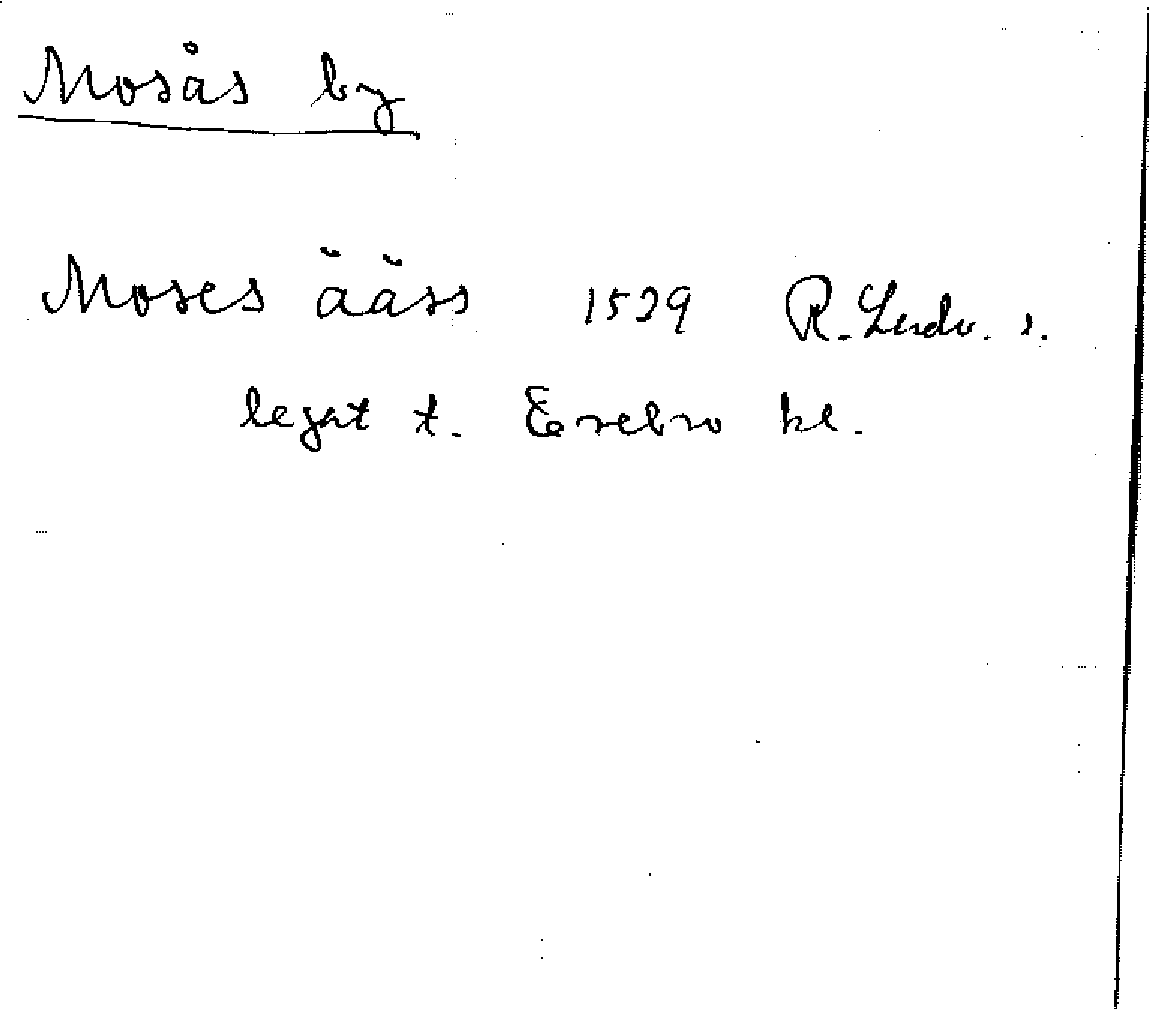 Mosås by
Moses ääss 1539 R. Lindv. s.
legat t. Erebro kl.